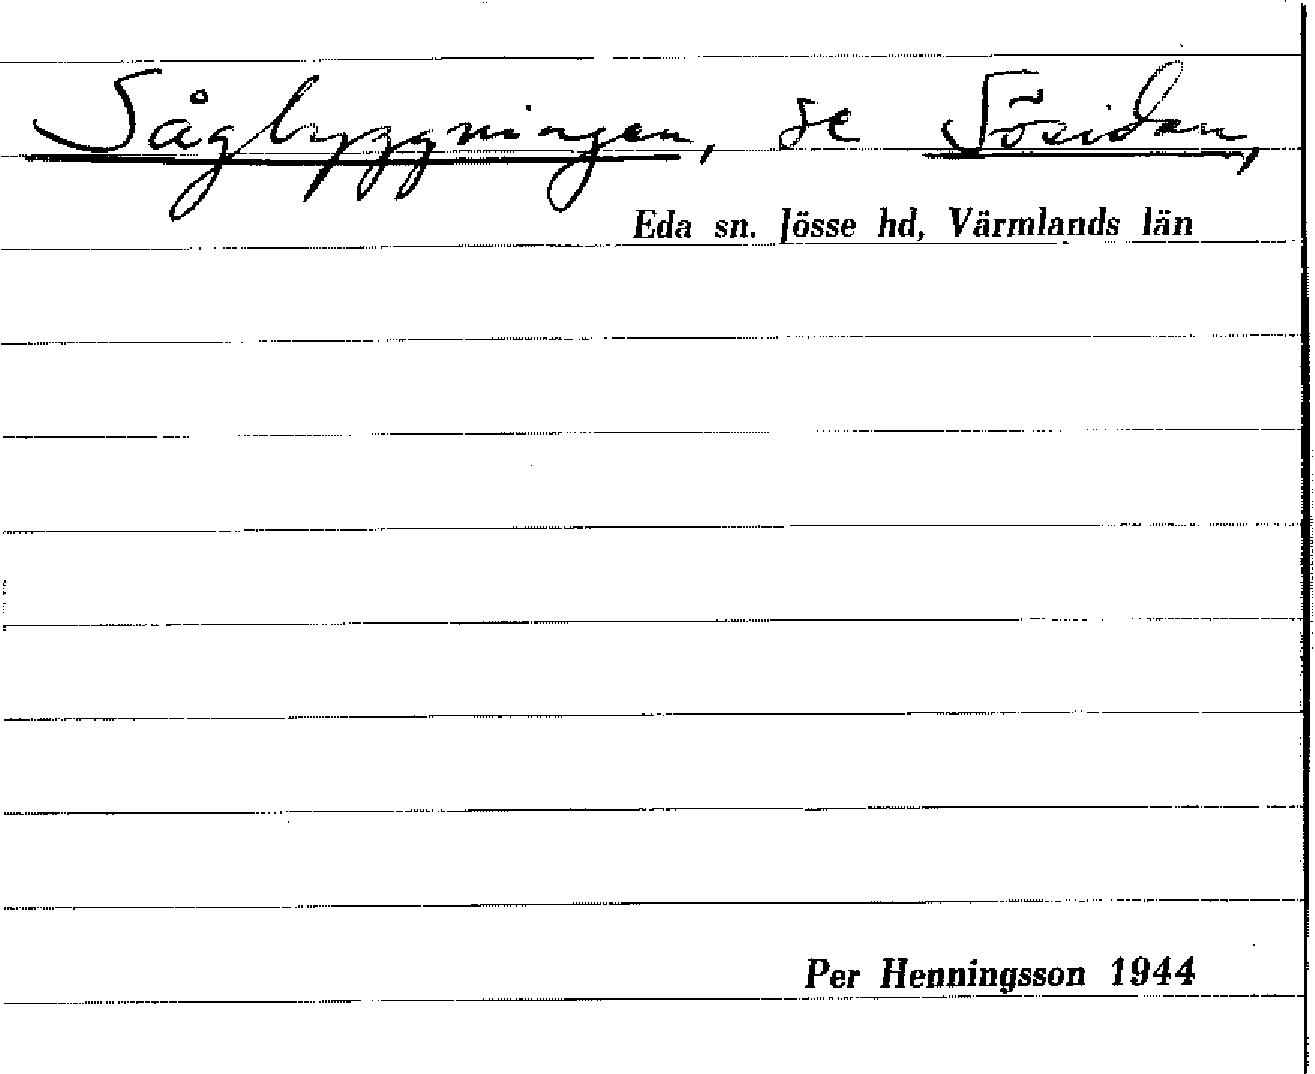 Sågbyggningen, se Sösidan,
Eda sn. Jösse hd, Värmlands län
Per Henningsson 1944